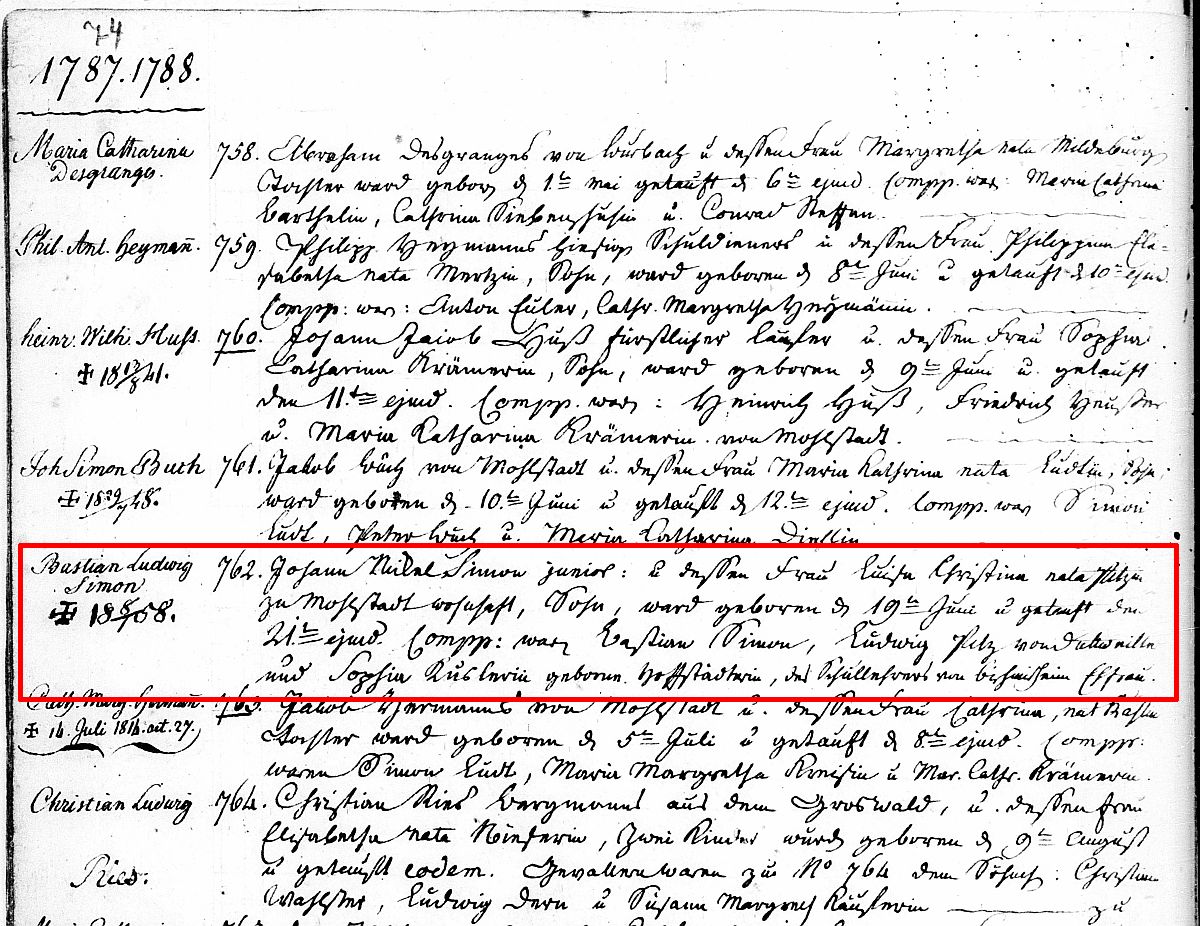 74
1787. 1788.
Maria Catharina
Desgranges.
758. Abraham Desgranges von u dessen Frau Margretha nata Mildeburg
Tochter ward gebor d 1te mai getauft d 6te ejusd. Compp. war Maria Cathrina
Barthelin, Cathrina u. Conrad Steffen.
Phil. Ant. Heymañ.
759. Philipp Heymanns hiesig Schuldieners u dessen Frau Philippina Eli-
sabetha nata Mertzin, Sohn, ward geboren d 8te Juni u getauft d 10te ejusd.
Compp: war: Anton Euler, Cathr. Margretha Heymännin.
Heinr. Wilh. Huss.
✠ 18 13/8 41.
760. Johann Jacob Huß fürstlicher Läufer u. dessen Frau Sophia
Catharina Krämerin, Sohn, ward geboren d 9te Juni u. getauft
den 11te ejusd. Compp. war: Heinrich Huß, Friedrich
u. Maria Katharina Krämerin von Mohlstadt.
Joh Simon Buch
✠ 18 48.
761. Jakob Buch von Mohlstadt u. dessen Frau Maria Kathrina nata Ludtin, Sohn,
ward geboren d. 10te Juni u getauft d 12te ejusd. Compp. war Simon
Ludt, Peter Buch u. Maria Katharina
Bastian Ludwig
Simon
✠ 18 58.
762. Johann Nikel Simon junior: u dessen Frau Luisa Christina nata Pitzin
zu Mohlstadt wohnhaft, Sohn, ward geboren d 19te Juni u getauft den
21te ejusd. Compp: war Bastian Simon, Ludwig Pitz von Dutweiler
und Sophia Kuslerin geborne Hoffstädterin, des Schullehrers von bischmisheim Ehfrau.
Cath. Marg. Hermañ.
✠ 14. Juli 1814. aet. 27.
763. Jacob Hermanns von Mohlstadt u. dessen Frau Cathrina, nat
Tochter ward geboren d 5te Juli u getauft d 8te ejusd. Compp:
waren Simon Ludt, Maria Margretha u Mar. Cathr. Krämerin.
Christian Ludwig
Ries.
764. Christian Ries Bergmanns aus dem Groswald, u. dessen Frau
Elisabetha nata Kieferin, Zwei Kinder wurd geboren d 9te August
u getauft eodem. Gevattern waren zu No 764 dem Söhnch: Christian
Wahlster, Ludwig Dern u Susann Margreth Käuslerin zu